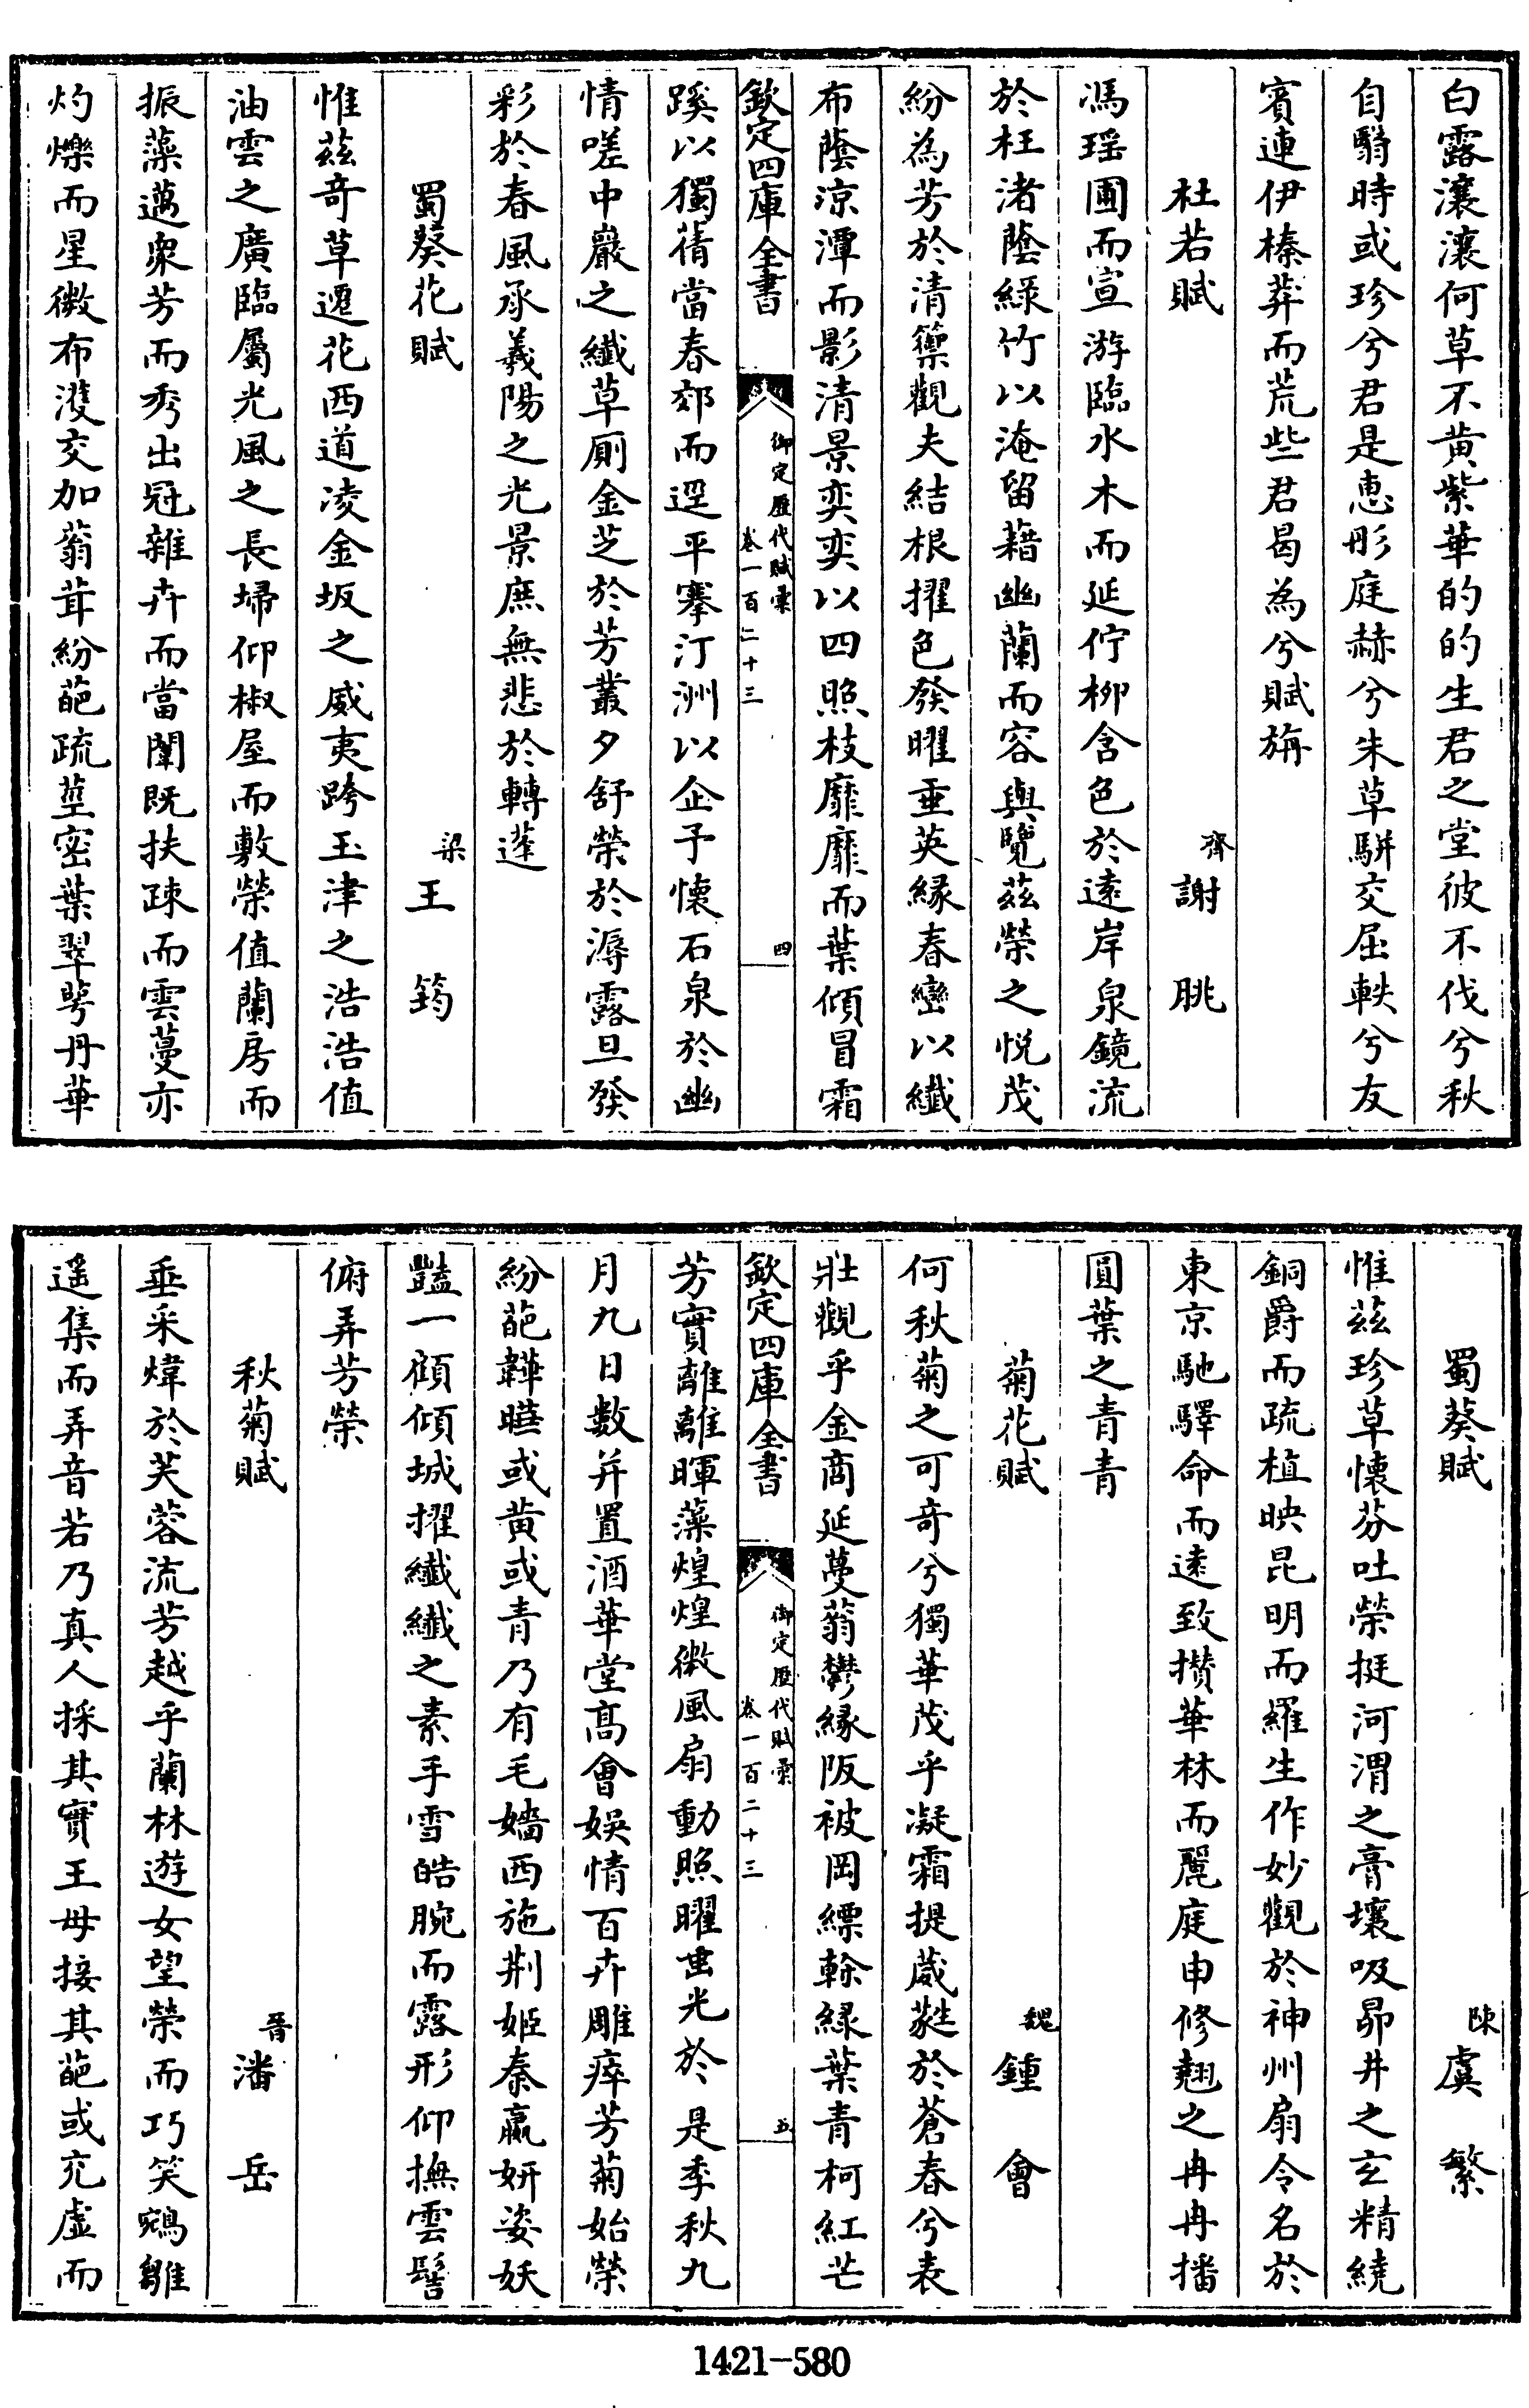 白露瀼瀼何草不黄紫華的的生君之堂彼不伐兮秋
自翳時或珍兮君是恵彤庭赫兮朱草駢交屈軼兮友
賓連伊榛莽而荒些君曷為兮賦旃
杜若賦 齊謝朓
馮瑶圃而宣游臨水木而延佇栁含色於逺岸泉鏡流
於枉渚蔭緑竹以淹留藉幽蘭而容與覽茲榮之悦茂
紛為芳於清籞觀夫結根擢色發曜垂英緣春巒以纖
布蔭涼潭而影清景奕奕以四照枝靡靡而葉傾冒霜
欽定四庫全書 御定歷代賦彙 卷一百二十三 四
蹊以獨蒨當春郊而逕平搴汀洲以企予懷石泉於幽
情嗟中巖之纖草厠金芝於芳叢夕舒榮於溽露旦發
彩於春風承羲陽之光景庶無悲於轉蓬
蜀葵花賦 梁王筠
惟茲奇草遷花西道凌金坂之威夷跨玉津之浩浩值
油雲之廣臨屬光風之長埽仰椒屋而敷榮值蘭房而
振藻邁衆芳而秀出冠雜卉而當闈既扶疎而雲蔓亦
灼爍而星微布濩交加蓊茸紛葩疏莖密葉翠萼丹華
蜀葵賦 陳虞繁
惟茲珍草懷芬吐榮挺河渭之膏壤吸昴井之玄精繞
銅爵而疏植映昆明而羅生作妙觀於神州扇令名於
東京馳驛命而逺致攢華林而麗庭申修翹之冉冉播
圓葉之青青
菊花賦 魏鍾會
何秋菊之可奇兮獨華茂乎凝霜提葳蕤於蒼春兮表
壯觀乎金商延蔓蓊鬱緣阪被岡縹榦緑葉青柯紅芒
欽定四庫全書 御定歷代賦彙 卷一百二十三 五
芳實離離暉藻煌煌微風扇動照曜垂光於是季秋九
月九日數并置酒華堂髙會娛情百卉雕瘁芳菊始榮
紛葩韡曄或黄或青乃有毛嬙西施荆姬秦嬴妍姿妖
豔一顧傾城擢纖纖之素手雪皓腕而露形仰撫雲髻
俯弄芳榮
秋菊賦 晉潘岳
垂采煒於芙蓉流芳越乎蘭林遊女望榮而巧笑鵷雛
遥集而弄音若乃真人採其實王母接其葩或充虚而
1421-580